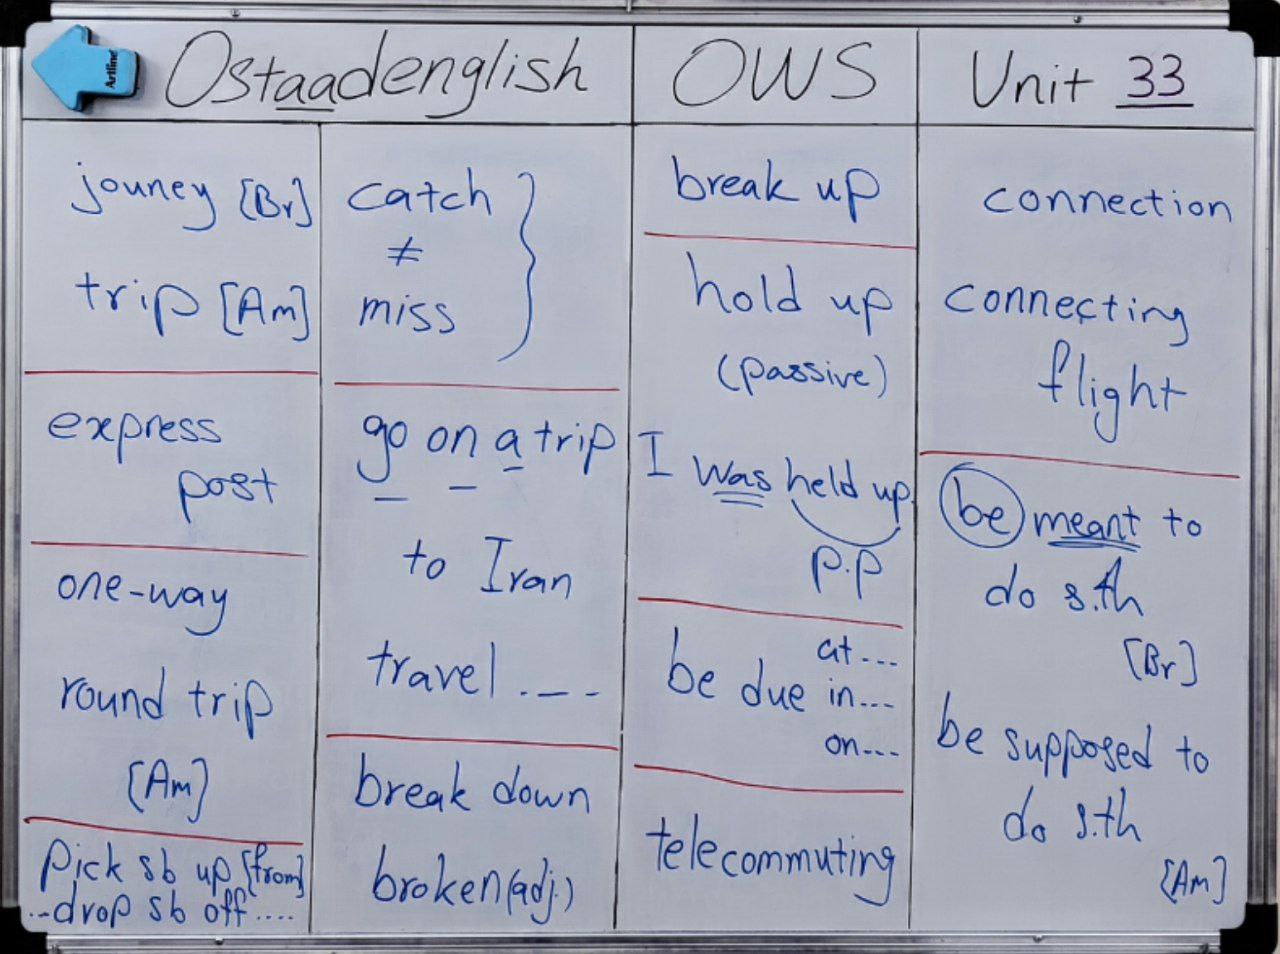 Artline
Ostaadenglish
OWS
Unit 33
jouney [Br]
trip [Am]
express
post
one-way
round trip
[Am]
pick sb up [from]
...drop sb off....
catch
≠
miss
go on a trip
to Iran
travel . _ _ _
break down
broken (adj.)
break up
hold up
(passive)
I was held up.
p.p
at...
be due in...
on...
telecommuting
connection
connecting
flight
be meant to
do s.th
[Br]
be supposed to
do s.th
[Am]